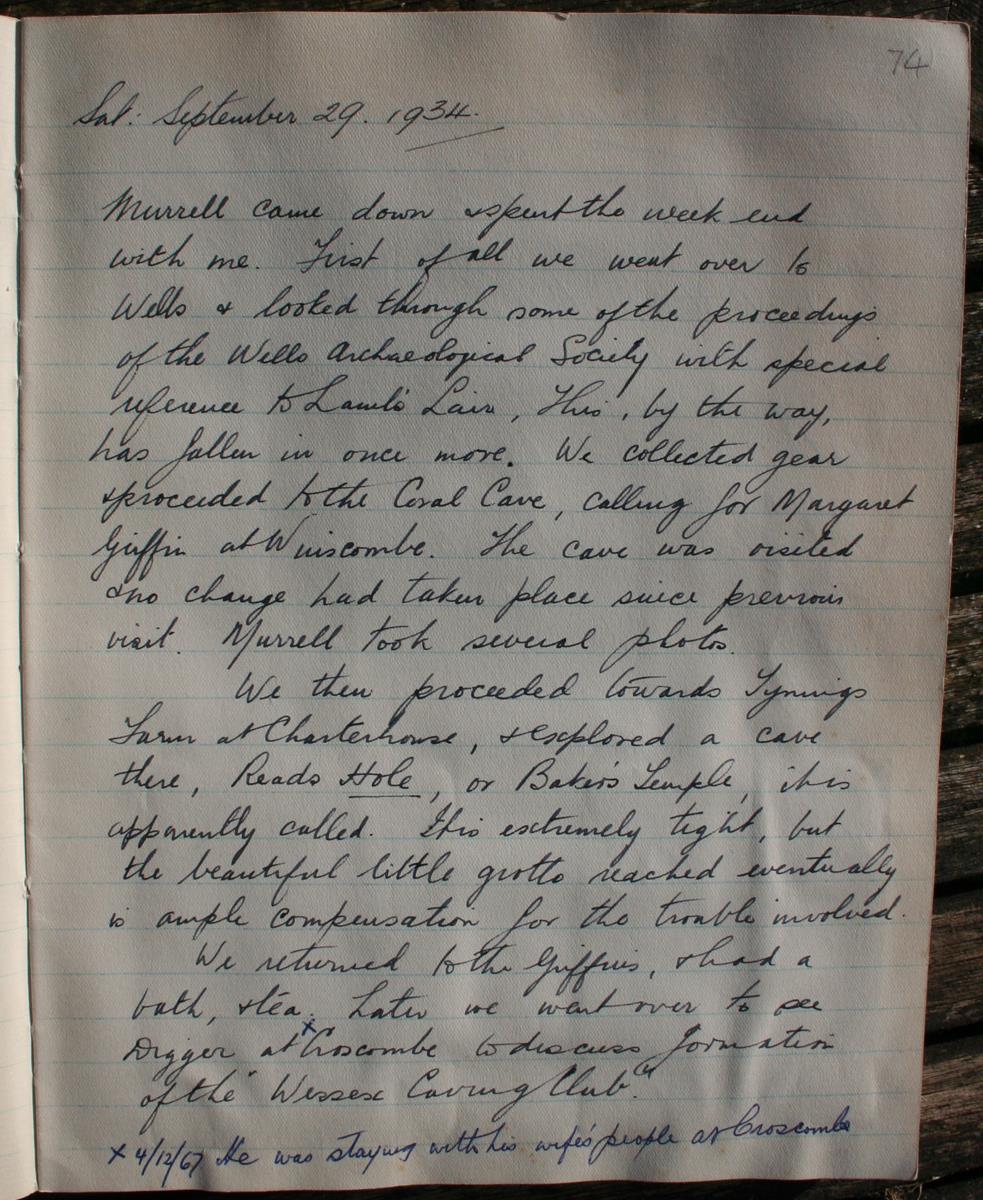 74
Sat: September 29. 1934.
Murrell came down & spent the week end
with me. First of all we went over to
Wells & looked through some of the proceedings
of the Wells Archaeological Society with special
reference to Lamb's Lair, This, by the way,
has fallen in once more. We collected gear
& proceeded to the Coral Cave, calling for Margaret
Griffin at Winscombe. The cave was visited
& no change had taken place since previous
visit. Murrell took several photos.
We then proceeded towards Tynings
Farm at Charterhouse, & explored a cave
there, Reads Hole, or Bakers Temple, it is
apparently called. It is extremely tight, but
the beautiful little grotto reached eventually
is ample compensation for the trouble involved.
We returned to the Griffins, & had a
bath, & tea. Later we went over to see
Digger at x Croscombe to discuss formation
of the "Wessex Caving Club".
x 4/12/67 He was staying with his wife's people at Croscombe